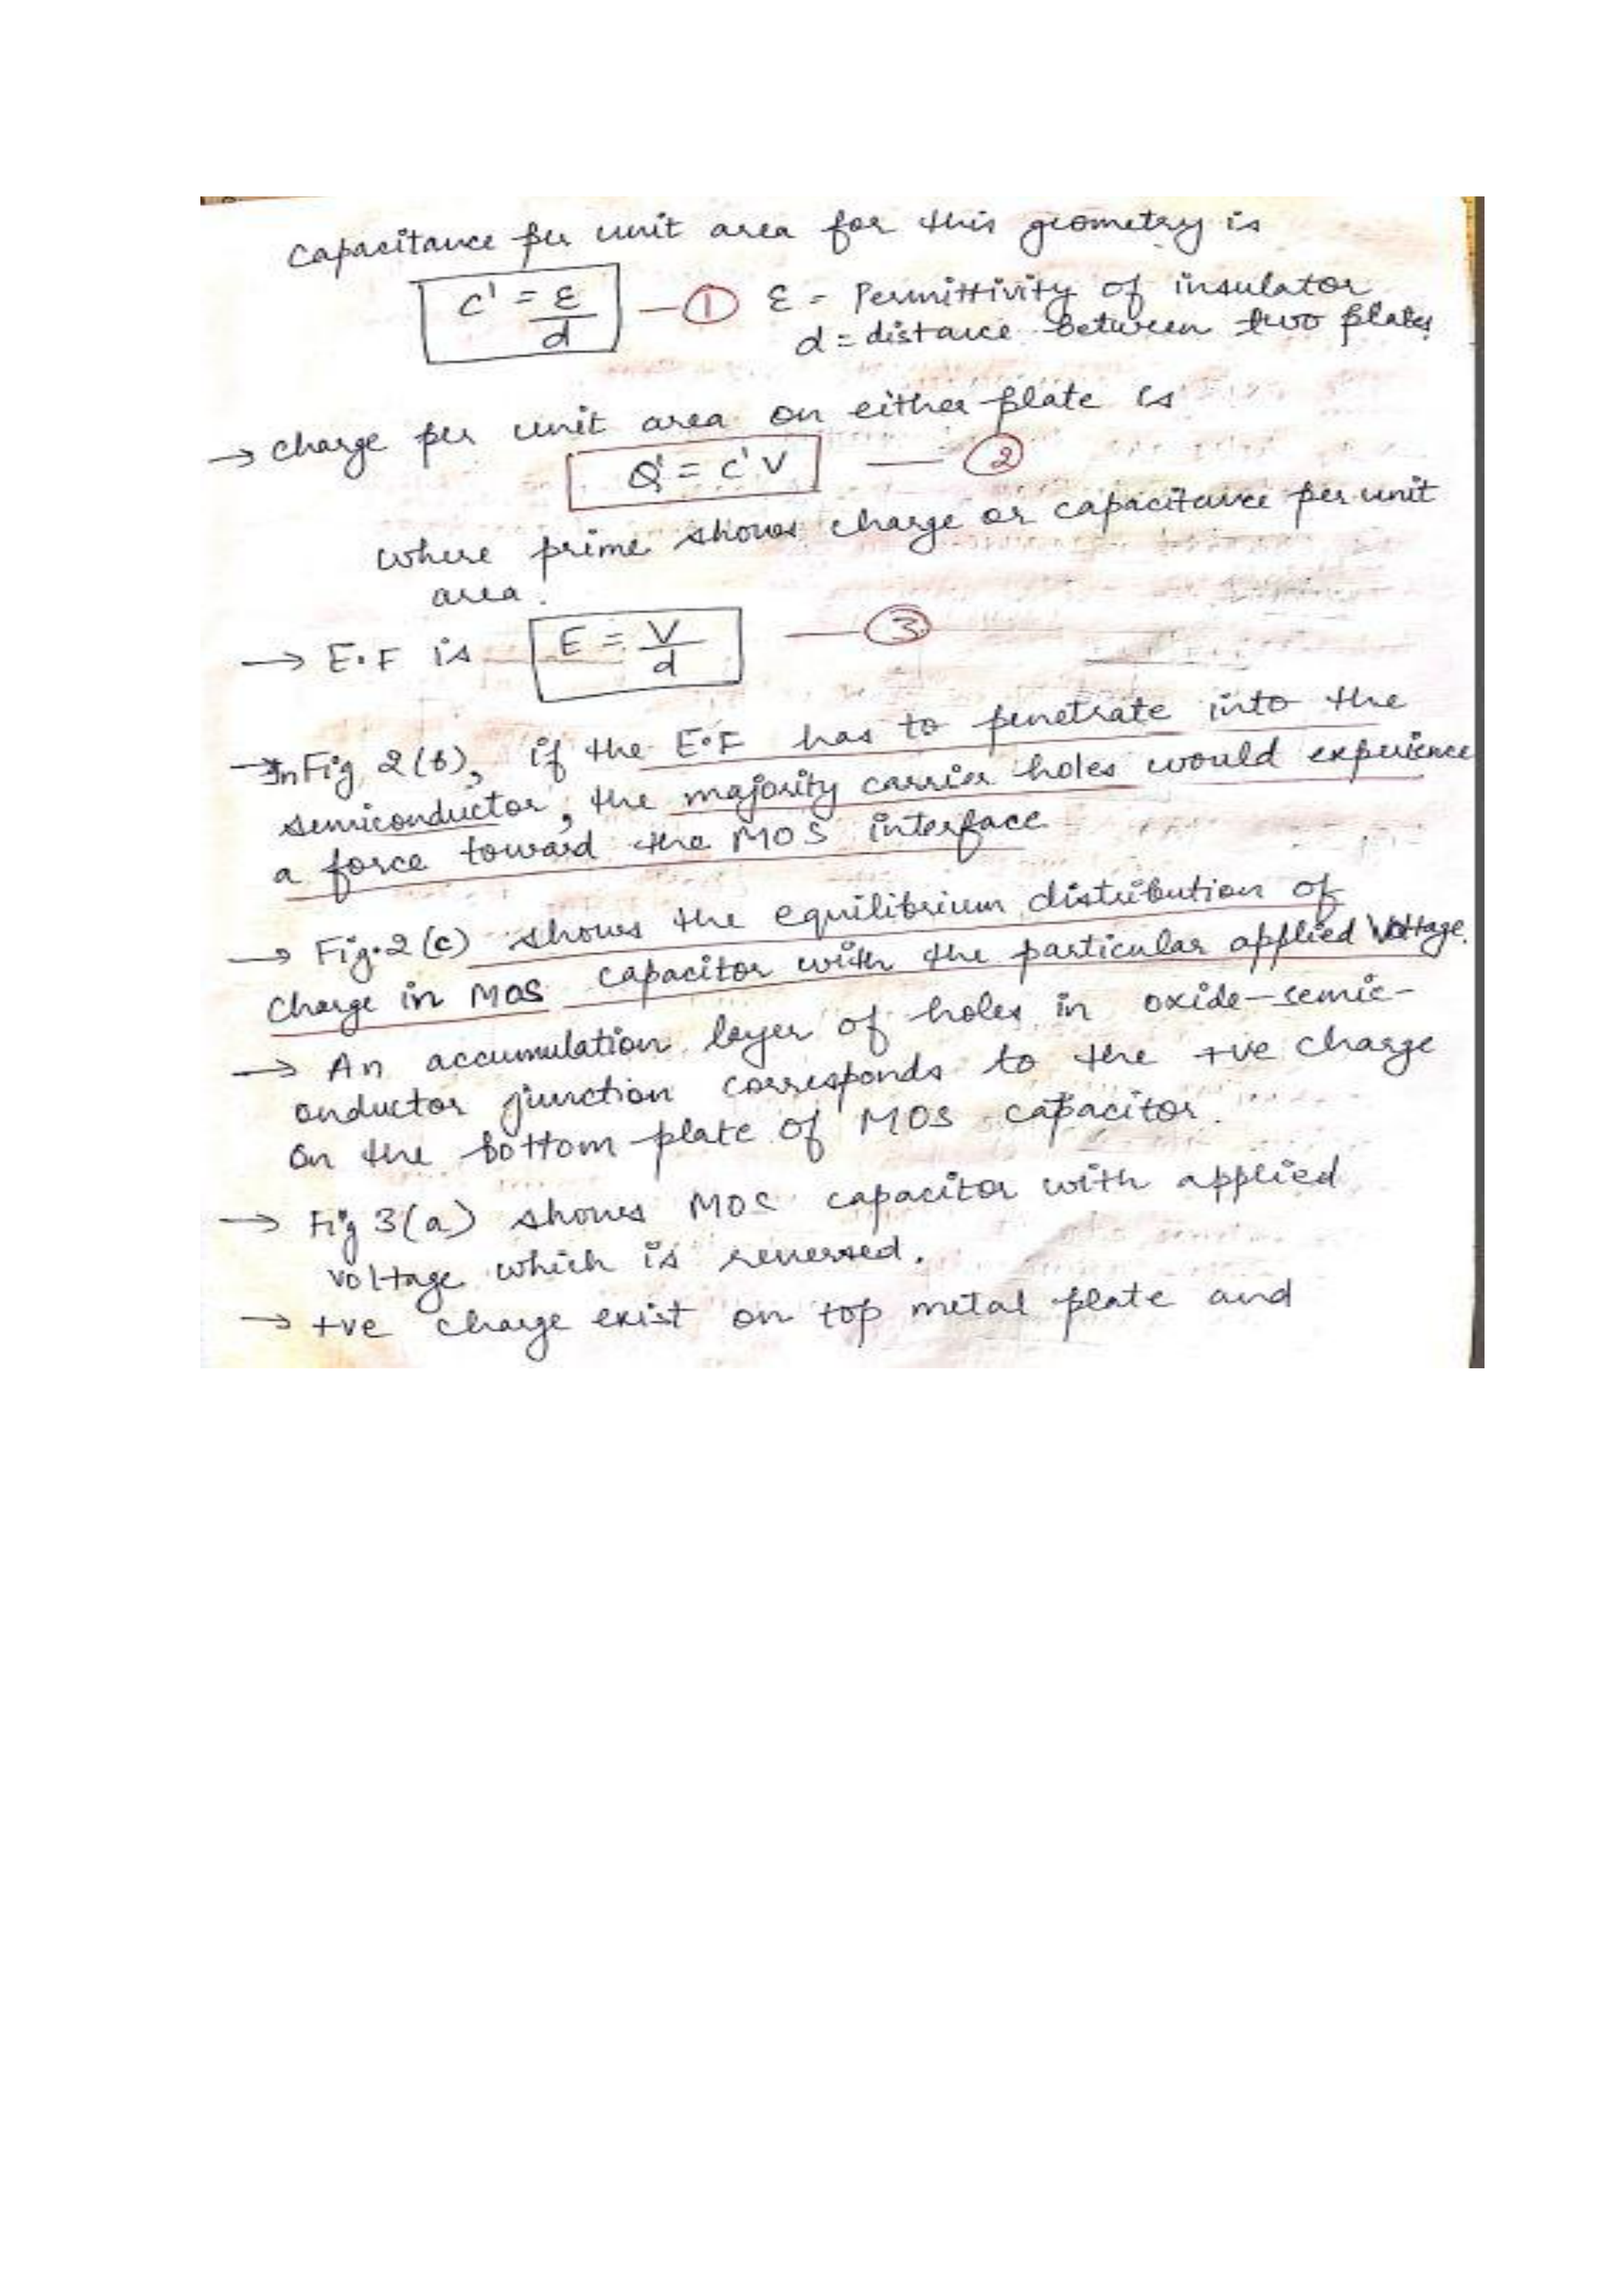 Capacitance per unit area for this geometry is
C' = ε/d — ① ε = Permittivity of insulator
d = distance between two plates
→ Charge per unit area on either plate is
Q' = C'V — ②
where prime shows charge or capacitance per unit
area.
→ E.F is E = V/d — ③
→ In Fig 2(b), if the E.F has to penetrate into the
semiconductor, the majority carrier holes would experience
a force toward the MOS interface
→ Fig.2(c) shows the equilibrium distribution of
Charge in MOS capacitor with the particular applied Voltage.
→ An accumulation layer of holes in oxide-semic-
onductor junction corresponds to the +ve charge
on the bottom plate of MOS capacitor.
→ Fig 3(a) shows MOS capacitor with applied
voltage which is reversed.
→ +ve charge exist on top metal plate and